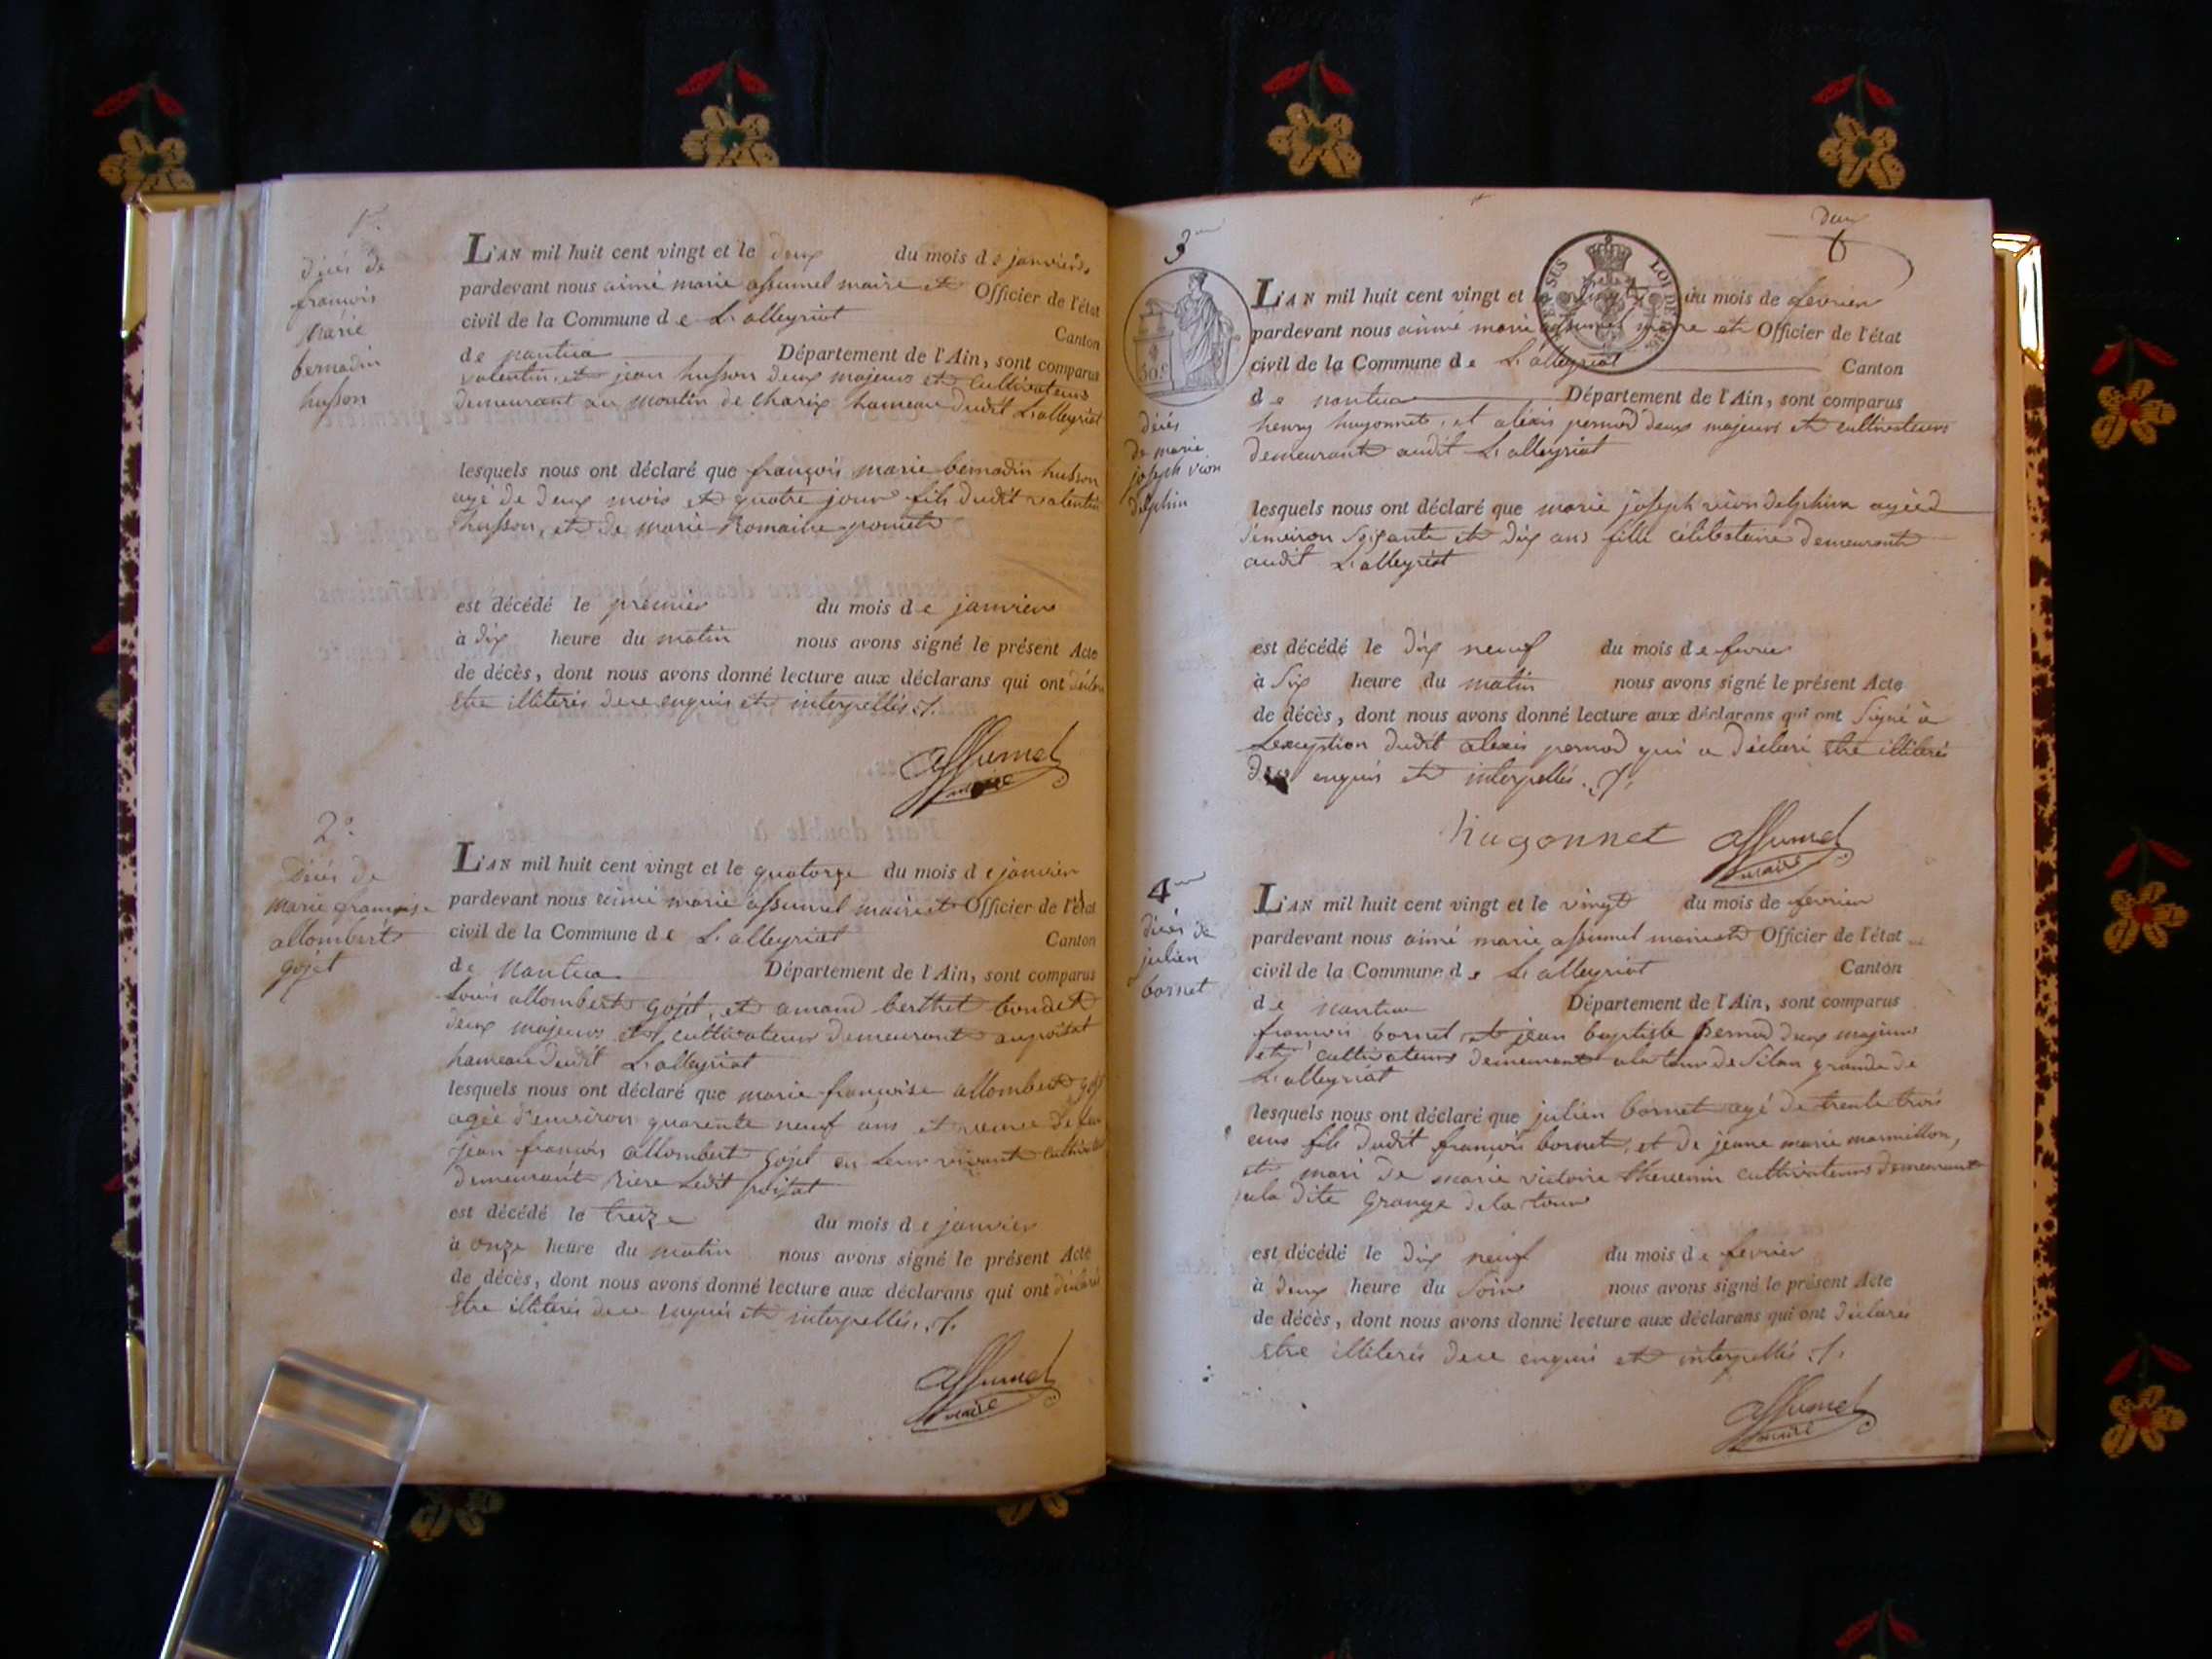 1er
décès de
françois
marie
bernadin
husson
L'AN mil huit cent vingt et le deux du mois de janvier
pardevant nous aimé marie assumel maire et Officier de l'état
civil de la Commune de L'alleyriat Canton
de nantua Département de l'Ain, sont comparus
valentin, et jean husson deux majeurs et cultivateurs
demeurant au moulin de charix hameau dudit L'alleyriat
lesquels nous ont déclaré que françois marie bernadin husson
agé de deux mois et quatre jours fils dudit valentin
husson, et de marie Romaine ponset
est décédé le premier du mois de janvier
à dix heure du matin nous avons signé le présent Acte
de décès, dont nous avons donné lecture aux déclarans qui ont déclaré
etre illiterés de ce enquis et interpellés ./.
assumel
maire
2°
Décès de
marie françoise
allombert
gojet
L'AN mil huit cent vingt et le quatorze du mois de janvier
pardevant nous aimé marie assumel maire et Officier de l'état
civil de la Commune de L'alleyriat Canton
de Nantua Département de l'Ain, sont comparus
Louis allombert gojet, et amand berthet bondet
deux majeurs et cultivateurs demeurant au poisat
hameau dudit L'alleyriat
lesquels nous ont déclaré que marie françoise allombert goj
agée d'environ quarente neuf ans et veuve de feu
jean françois allombert gojet en leur vivant cultivateur
demeurant Riere Ledit poisat
est décédé le treize du mois de janvier
à onze heure du matin nous avons signé le présent Acte
de décès, dont nous avons donné lecture aux déclarans qui ont déclaré
etre illiterés de ce enquis et interpellés ./.
assumel
maire
deux
3me
décès
de marie
joseph vion
delphin
L'AN mil huit cent vingt et le du mois de fevrier
pardevant nous aimé marie assumel maire et Officier de l'état
civil de la Commune de L'alleyriat Canton
de nantua Département de l'Ain, sont comparus
henry hugonnet, et alexis pernod deux majeurs et cultivateurs
demeurant audit L'alleyriat
lesquels nous ont déclaré que marie joseph vion delphin agée d
environ soixante et dix ans fille celibataire demeurant
audit L'alleyriat
est décédé le dix neuf du mois de fevrier
à six heure du matin nous avons signé le présent Acte
de décès, dont nous avons donné lecture aux déclarans qui ont signé à
Lexception dudit alexis pernod qui a déclaré etre illiteré
de ce enquis et interpellés ./.
hugonnet assumel
maire
4me
décès de
julien
bornet
L'AN mil huit cent vingt et le vingt du mois de fevrier
pardevant nous aimé marie assumel maire et Officier de l'état
civil de la Commune de L'alleyriat Canton
de nantua Département de l'Ain, sont comparus
françois bornet et jean baptiste pernod deux majeurs
et cultivateurs demeurant a la tour de Silan grange de
L'alleyriat
lesquels nous ont déclaré que julien bornet agé de trente trois
ans fils dudit françois bornet, et de jeane marie marmillon,
et mari de marie victoire thevenin cultivateurs demeurant
a la dite grange de la tour
est décédé le dix neuf du mois de fevrier
à deux heure du soir nous avons signé le présent Acte
de décès, dont nous avons donné lecture aux déclarans qui ont déclarés
etre illiterés de ce enquis et interpellés ./.
assumel
maire